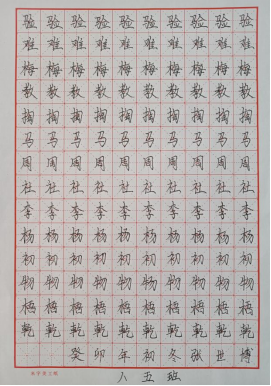 验验验验验验验验验验
难难难难难难难难难难
梅梅梅梅梅梅梅梅梅梅
教教教教教教教教教教
掏掏掏掏掏掏掏掏掏掏
马马马马马马马马马马
周周周周周周周周周周
社社社社社社社社社社
李李李李李李李李李李
杨杨杨杨杨杨杨杨杨杨
初初初初初初初初初初
物物物物物物物物物物
梧梧梧梧梧梧梧梧梧梧
乾乾乾乾乾乾乾乾乾乾
癸卯年初冬张世博
八五班